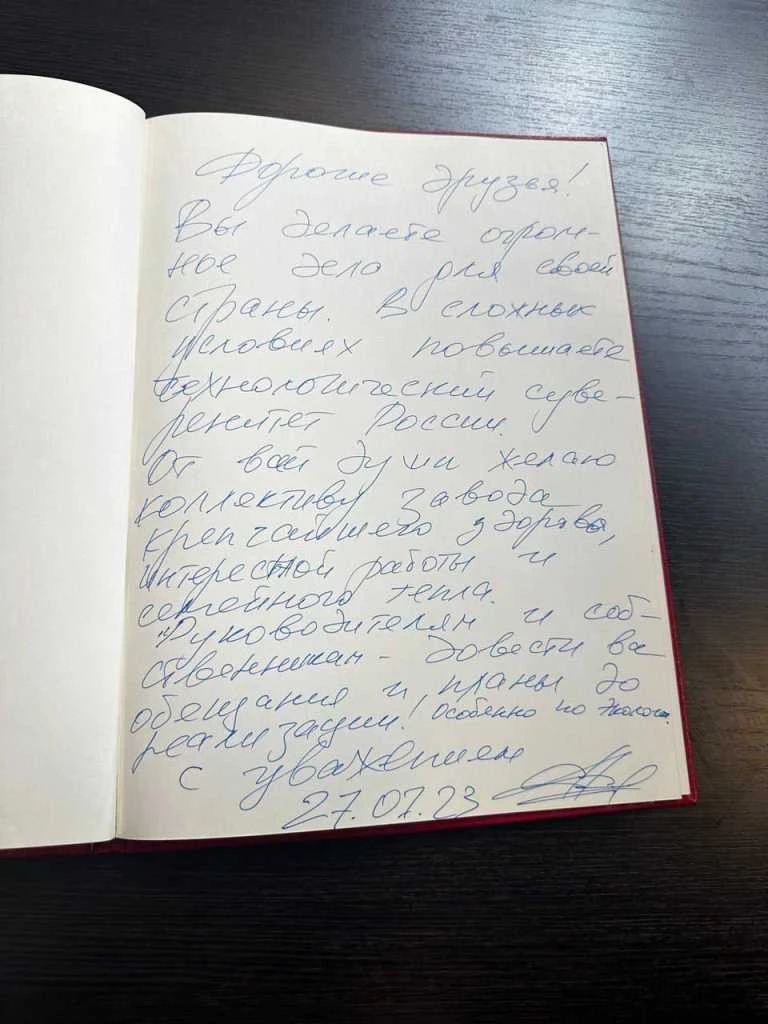 Дорогие друзья!
Вы делаете огром-
ное дела для своей
страны. В сложных
условиях повышаете
технологический суве-
ренитет России.
От всей души желаю
коллективу завода
крепчайшего здравья,
интересной работы и
семейного тепла.
Руководителям и соб-
ственникам - довести все
обещания и планы до
реализации! Особенно по эколог.
С уважением
27.07.23